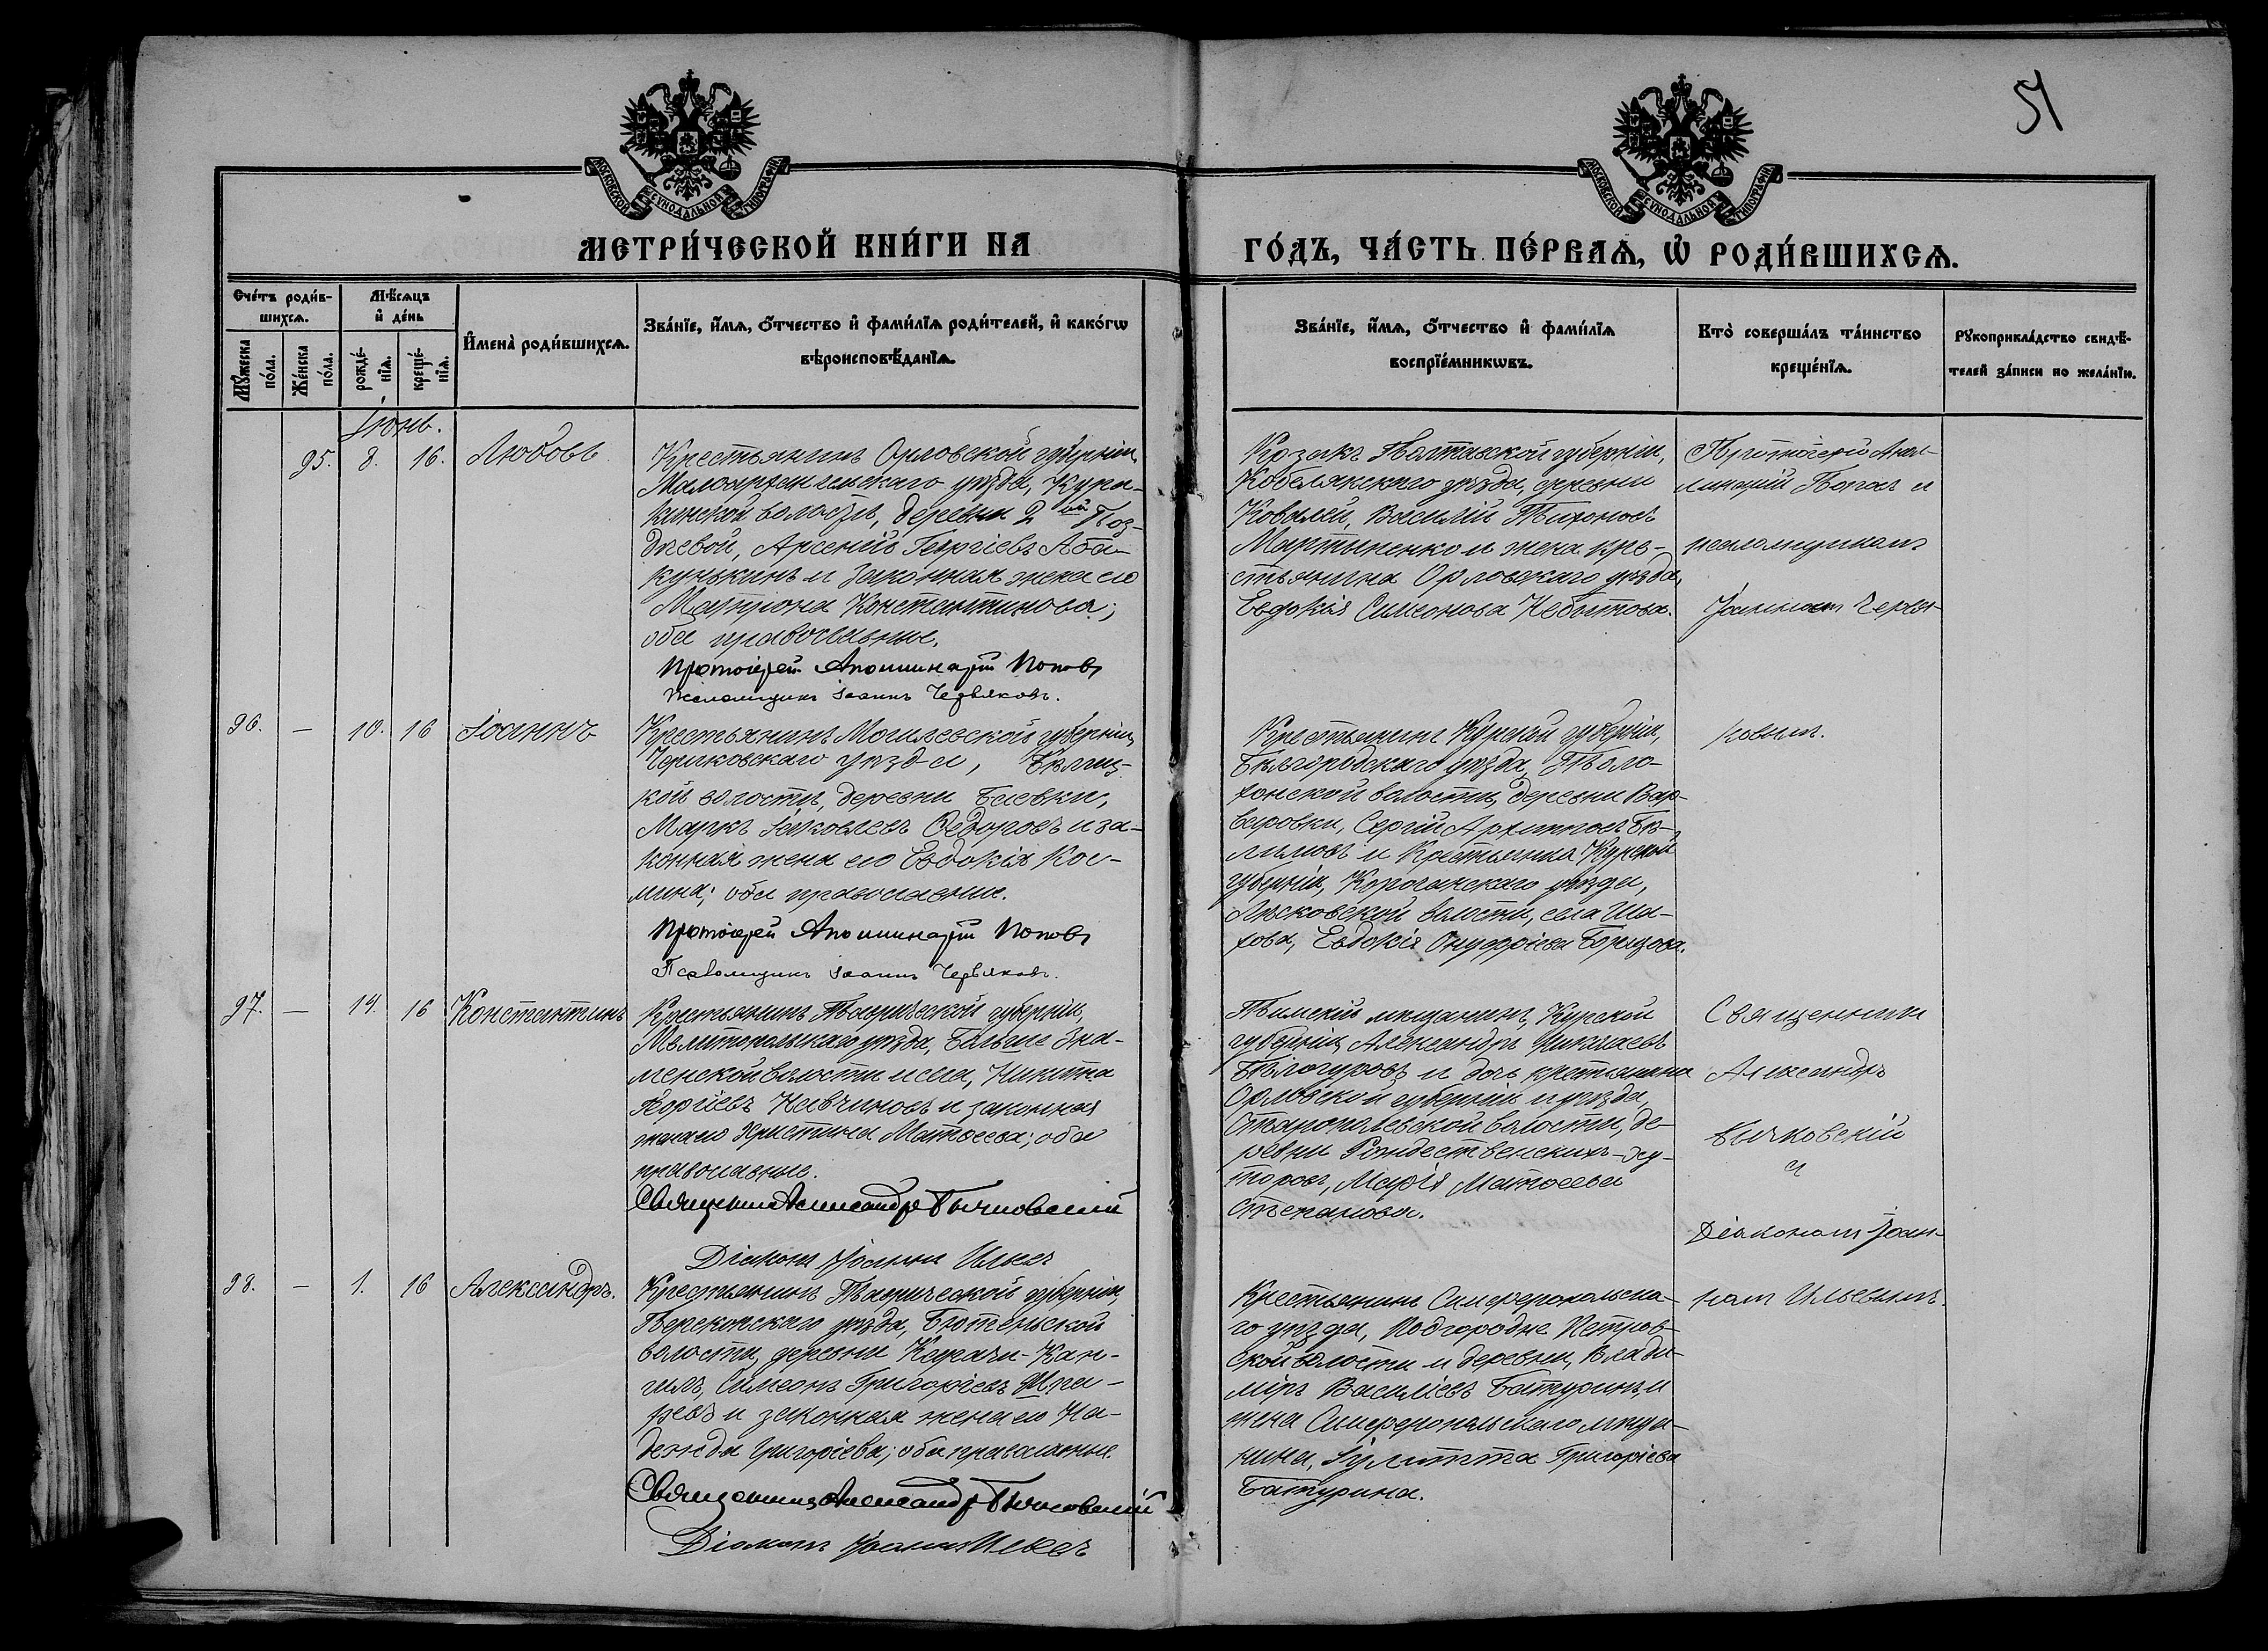 51
МОСКОВСКОЙ СѴНОДАЛЬНОЙ ТИПОГРАФІИ
МОСКОВСКОЙ СѴНОДАЛЬНОЙ ТИПОГРАФІИ
МЕТРИ́ЧЕСКОЙ КНИ́ГИ НА
ГО́ДЪ, ЧА́СТЬ ПЕ́РВАѦ, Ѡ҆ РОДИ́ВШИХСѦ.
Сче́тъ роди́в-
шихсѧ.
Мꙋ́жеска по́ла.
Же́нска по́ла.
Мѣ́сѧцъ
и҆ де́нь
рожде́-
нїѧ.
креще́-
нїѧ.
И҆мена̀ роди́вшихсѧ.
Зва́нїе, и҆́мѧ, ѻ҆́тчество и҆ фами́лїѧ роди́телей, и҆ како́гѡ
вѣроисповѣ́данїѧ.
Зва́нїе, и҆́мѧ, ѻ҆́тчество и҆ фами́лїѧ
воспрїе́мникѡвъ.
Кто̀ соверша́лъ та́инство
креще́нїѧ.
Рꙋкоприкла́дство свидѣ́-
телей за́писи по жела́нїю.
Іюнь.
95. 8. 16. Любовь
Крестьянинъ Орловской губерніи,
Малоархангельскаго уѣзда, Кура-
кинской волости, деревни 2ой Поз-
дѣевой, Арсеній Георгіевъ Аба-
кунькинъ и законная жена его
Матрона Константинова;
оба православные.
Протоіерей Аполлинарій Поповъ
Псаломщикъ Іоаннъ Червяковъ.
Козакъ Полтавской губерніи,
Кобелякскаго уѣзда, деревни
Ковалей, Василій Тихоновъ
Мартыненко и жена кре-
стьянина Орловскаго уѣзда,
Евдокія Симеонова
Протоіерей Апол-
линарій Поповъ и
псаломщикомъ
Іоанномъ Червя-
96. — 10. 16 Іоаннъ
Крестьянинъ Могилевской губерніи,
Чериковскаго уѣзда,
кой волости, деревни Баевки,
Маркъ Іаковлевъ Ѳедоровъ и за-
конная жена его Евдокія Кос-
мина; оба православные.
Протоіерей Аполлинарій Поповъ
Псаломщикъ Іоаннъ Червяковъ.
Крестьянинъ Курской губерніи,
Бѣлгородскаго уѣзда,
волости, деревни Вар-
варовки, Сергій Архиповъ
и Крестьянка Курской
губерніи, Корочанскаго уѣзда,
волости, села Ша-
хова, Евдокія Онуфріева Борцова.
ковымъ.
97. — 14. 16 Константинъ
Крестьянинъ Таврической губерніи,
Мелитопольскаго уѣзда, Больше Зна-
менской волости и села, Никита
Георгіевъ и законная
жена его Христина Матѳеева; оба
православные.
Священникъ Александръ Бычковскій
Діаконъ Іоаннъ Ильевъ
Тимскій мѣщанинъ, Курской
губерніи, Александръ Николаевъ
Бѣлогуровъ и дочь крестьянина
Орловской губерніи и уѣзда,
волости, де-
ревни Рождественскихъ-Ху-
торовъ, Марія Матѳеева
Степанова.
Священник
Александръ
Бычковскій
и
Діакономъ Іоан-
98. — 1. 16 Александръ.
Крестьянинъ Таврической губерніи,
Перекопскаго уѣзда, Бютеньской
волости, деревни Карачи-Кан-
гилъ, Симеонъ Григоріевъ
и законная жена его На-
дежда Григоріева; оба православные.
Священникъ Александръ Бычковскій
Діаконъ Іоаннъ Ильевъ
Крестьянинъ Симферопольска-
го уѣзда, Подгородне Петров-
ской волости и деревни, Влади-
міръ Василіевъ Батуринъ и
жена Симферопольскаго мѣща-
нина, Іулитта Григоріева
Батурина.
номъ Ильевымъ.